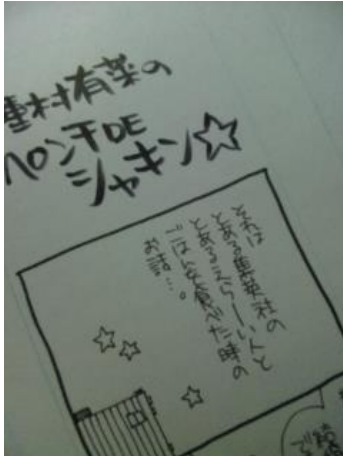 種村有菜の
ペンチDE
シャキン☆
それは
とある集英社の
とあるえらーい人と
ごはんを食べた時の
お話…。